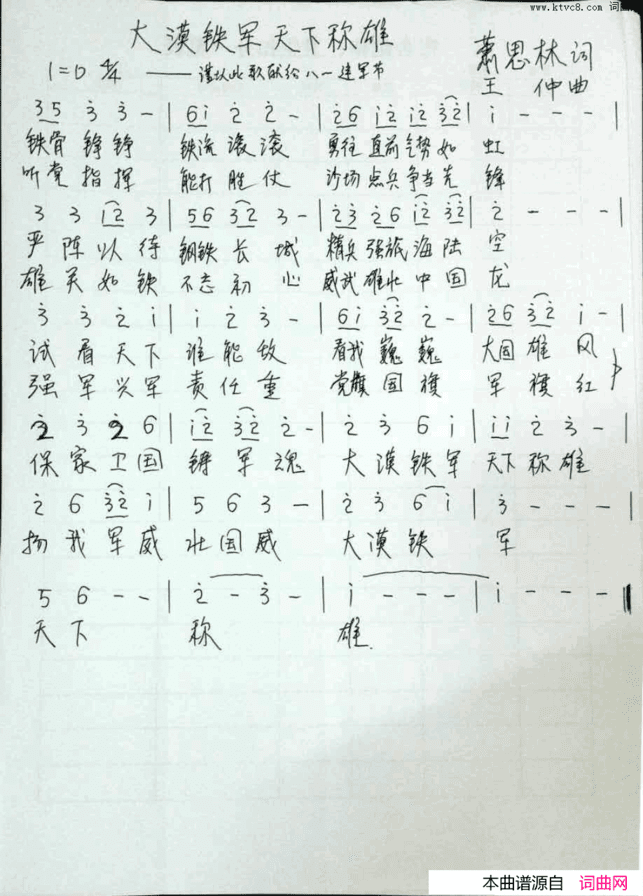 www.ktvc8.com 词曲网
大漠铁军天下称雄
萧思林词
1=D 4/4 ——谨以此歌献给八一建军节
王 仲曲
3 5 3 3 - | 6 i 2 2 - | 2 6 i 2 i 2 3 2 | i - - -
铁骨铮铮 铁流滚滚 勇往直前气势如 虹
听党指挥 能打胜仗 沙场点兵争当先 锋
3 3 i 2 3 | 5 6 3 2 3 - | 2 3 2 6 i 2 3 2 | 2 - - -
严阵以待 钢铁长城 精兵强旅海陆 空
雄关如铁 不忘初心 威武雄壮中国 龙
3 3 2 i | i 2 3 - | 6 i 3 2 2 - | 2 6 3 2 i -
试看天下 谁能敌 看我巍巍 大国雄风
强军兴军 责任重 党旗国旗 军旗红
2 3 2 6 | i 2 3 2 2 - | 2 3 6 i | i i 2 3 -
保家卫国 铸军魂 大漠铁军 天下称雄
2 6 3 2 i | 5 6 3 - | 2 3 6 i | 3 - - -
扬我军威 壮国威 大漠铁 军
5 6 - - | 2 - 3 - | i - - - | i - - -
天下 称 雄
本曲谱源自 词曲网